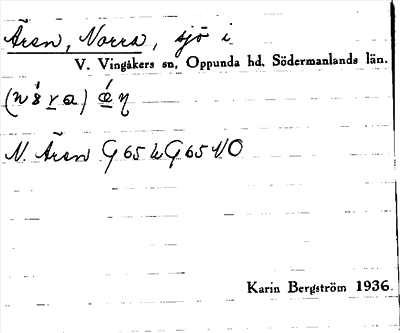 Ären, Norra, sjö i
V. Vingåkers sn, Oppunda hd, Södermanlands län.
N. Ären G 65 G 65 NO
Karin Bergström 1936.